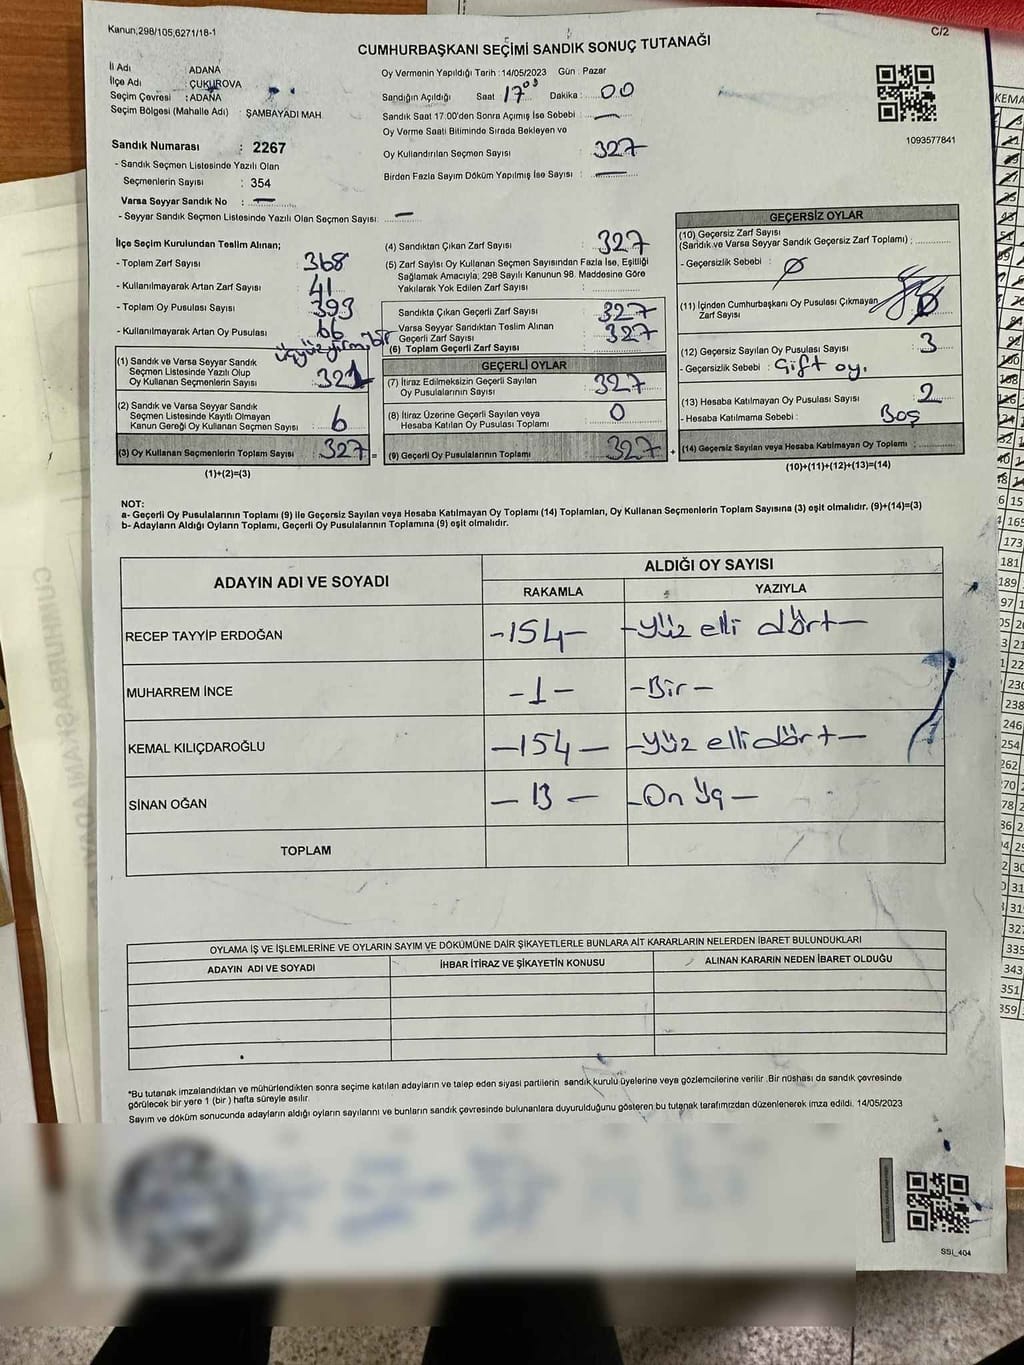 Kanun,298/105,6271/18-1
C/2
CUMHURBAŞKANI SEÇİMİ SANDIK SONUÇ TUTANAĞI
İl Adı : ADANA
İlçe Adı : ÇUKUROVA
Seçim Çevresi : ADANA
Seçim Bölgesi (Mahalle Adı) : ŞAMBAYADI MAH.
Sandık Numarası : 2267
- Sandık Seçmen Listesinde Yazılı Olan
Seçmenlerin Sayısı : 354
Varsa Seyyar Sandık No : —
- Seyyar Sandık Seçmen Listesinde Yazılı Olan Seçmen Sayısı: —
Oy Vermenin Yapıldığı Tarih : 14/05/2023 Gün : Pazar
Sandığın Açıldığı Saat : 17 Dakika : 00
Sandık Saat 17.00'den Sonra Açımış İse Sebebi : —
Oy Verme Saati Bitiminde Sırada Bekleyen ve
Oy Kullandırılan Seçmen Sayısı : 327
Birden Fazla Sayım Döküm Yapılmış İse Sayısı : —
1093577841
İlçe Seçim Kurulundan Teslim Alınan;
- Toplam Zarf Sayısı : 368
- Kullanılmayarak Artan Zarf Sayısı : 41
- Toplam Oy Pusulası Sayısı : 393
- Kullanılmayarak Artan Oy Pusulası : 66
Üçyüzyirmibir
(1) Sandık ve Varsa Seyyar Sandık
Seçmen Listesinde Yazılı Olup
Oy Kullanan Seçmenlerin Sayısı : 321
(2) Sandık ve Varsa Seyyar Sandık
Seçmen Listesinde Kayıtlı Olmayan
Kanun Gereği Oy Kullanan Seçmen Sayısı : 6
(3) Oy Kullanan Seçmenlerin Toplam Sayısı : 327 =
(1)+(2)=(3)
(4) Sandıktan Çıkan Zarf Sayısı : 327
(5) Zarf Sayısı Oy Kullanan Seçmen Sayısından Fazla İse, Eşitliği
Sağlamak Amacıyla; 298 Sayılı Kanunun 98. Maddesine Göre
Yakılarak Yok Edilen Zarf Sayısı :
Sandıkta Çıkan Geçerli Zarf Sayısı : 327
Varsa Seyyar Sandıktan Teslim Alınan
Geçerli Zarf Sayısı : 327
(6) Toplam Geçerli Zarf Sayısı :
GEÇERLİ OYLAR
(7) İtiraz Edilmeksizin Geçerli Sayılan
Oy Pusulalarının Sayısı : 327
(8) İtiraz Üzerine Geçerli Sayılan veya
Hesaba Katılan Oy Pusulası Toplamı : 0
(9) Geçerli Oy Pusulalarının Toplamı : 327 +
GEÇERSİZ OYLAR
(10) Geçersiz Zarf Sayısı
(Sandık ve Varsa Seyyar Sandık Geçersiz Zarf Toplamı) :
- Geçersizlik Sebebi : Ø
(11) İçinden Cumhurbaşkanı Oy Pusulası Çıkmayan
Zarf Sayısı : Ø
(12) Geçersiz Sayılan Oy Pusulası Sayısı : 3
- Geçersizlik Sebebi : Çift oy.
(13) Hesaba Katılmayan Oy Pusulası Sayısı : 2
- Hesaba Katılmama Sebebi : Boş
(14) Geçersiz Sayılan veya Hesaba Katılmayan Oy Toplamı :
(10)+(11)+(12)+(13)=(14)
NOT:
a- Geçerli Oy Pusulalarının Toplamı (9) ile Geçersiz Sayılan veya Hesaba Katılmayan Oy Toplamı (14) Toplamları, Oy Kullanan Seçmenlerin Toplam Sayısına (3) eşit olmalıdır. (9)+(14)=(3)
b- Adayların Aldığı Oyların Toplamı, Geçerli Oy Pusulalarının Toplamına (9) eşit olmalıdır.
ADAYIN ADI VE SOYADI
ALDIĞI OY SAYISI
RAKAMLA YAZIYLA
RECEP TAYYİP ERDOĞAN -154- -Yüz elli dört-
MUHARREM İNCE -1- -Bir-
KEMAL KILIÇDAROĞLU -154- -Yüz elli dört-
SİNAN OĞAN -13- -On üç-
TOPLAM
OYLAMA İŞ VE İŞLEMLERİNE VE OYLARIN SAYIM VE DÖKÜMÜNE DAİR ŞİKAYETLERLE BUNLARA AİT KARARLARIN NELERDEN İBARET BULUNDUKLARI
ADAYIN ADI VE SOYADI İHBAR İTİRAZ VE ŞİKAYETİN KONUSU ALINAN KARARIN NEDEN İBARET OLDUĞU
*Bu tutanak imzalandıktan ve mühürlendikten sonra seçime katılan adayların ve talep eden siyasi partilerin sandık kurulu üyelerine veya gözlemcilerine verilir. Bir nüshası da sandık çevresinde
görülecek bir yere 1 (bir ) hafta süreyle asılır.
Sayım ve döküm sonucunda adayların aldığı oyların sayılarını ve bunların sandık çevresinde bulunanlara duyurulduğunu gösteren bu tutanak tarafımızdan düzenlenerek imza edildi. 14/05/2023
SSI_404